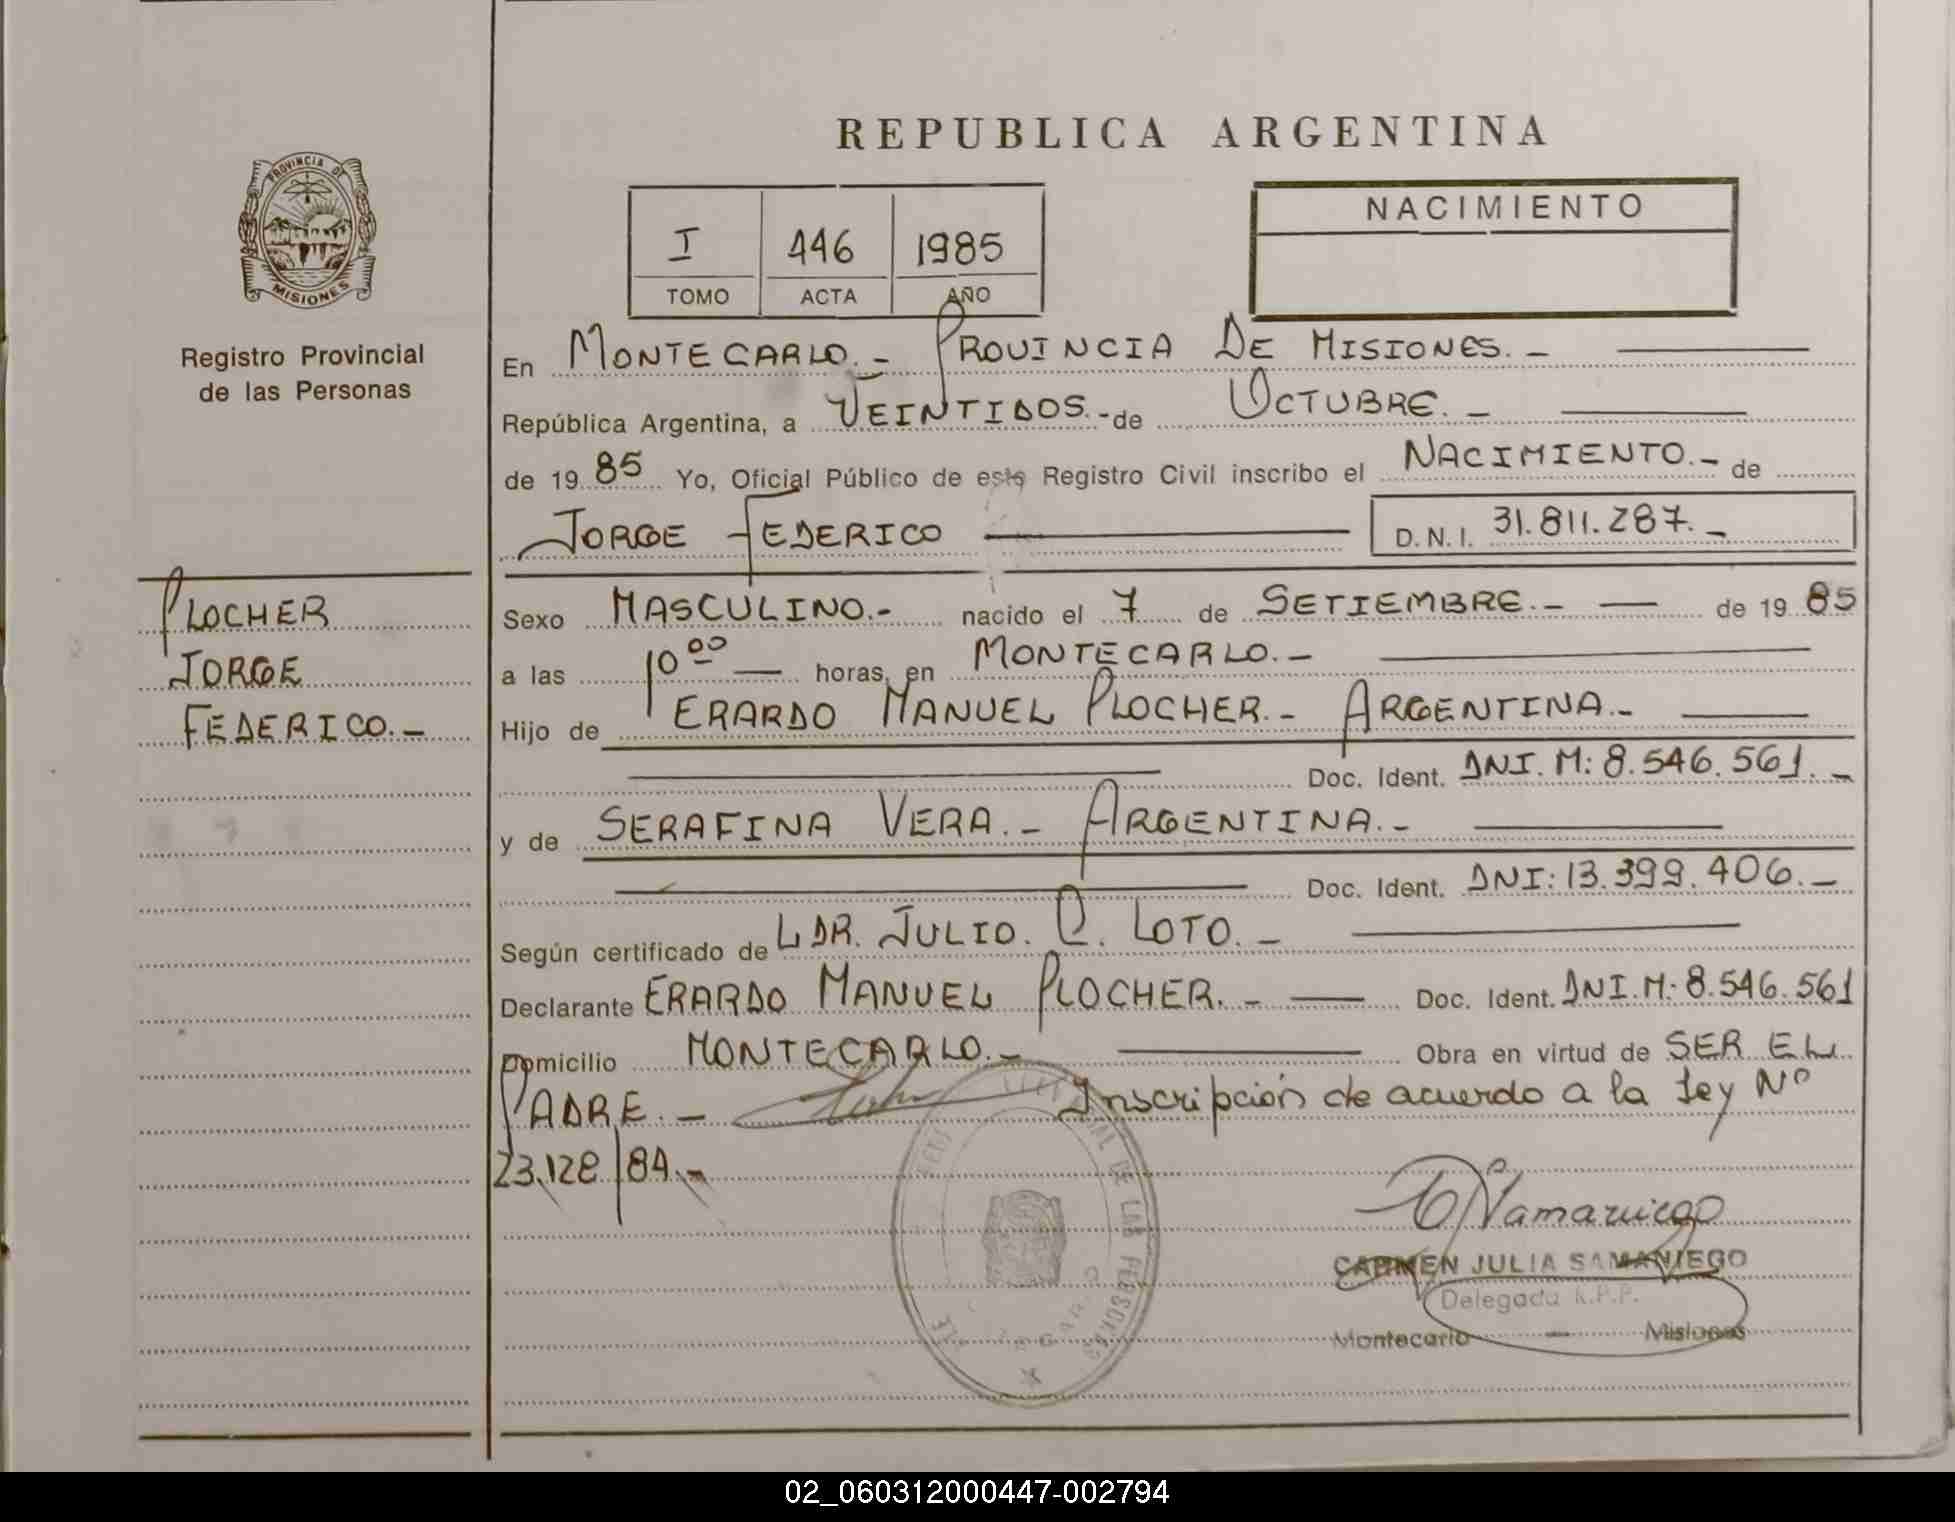 REPUBLICA ARGENTINA
PROVINCIA DE
MISIONES
Registro Provincial
de las Personas
I 446 1985
TOMO ACTA AÑO
NACIMIENTO
En MONTECARLO.- PROVINCIA DE MISIONES.-
República Argentina, a VEINTIDOS.- de OCTUBRE.-
de 1985 Yo, Oficial Público de este Registro Civil inscribo el NACIMIENTO.- de
JORGE FEDERICO D.N.I. 31.811.287.-
PLOCHER
JORGE
FEDERICO.-
Sexo MASCULINO.- nacido el 7 de SETIEMBRE.- de 1985
a las 10 00 horas, en MONTECARLO.-
Hijo de ERARDO MANUEL PLOCHER.- ARGENTINA.-
Doc. Ident. DNI. M: 8.546.561.-
y de SERAFINA VERA.- ARGENTINA.-
Doc. Ident. DNI: 13.399.406.-
Según certificado de L DR. JULIO. C. LOTO.-
Declarante ERARDO MANUEL PLOCHER.- Doc. Ident. DNI. M: 8.546.561
Domicilio MONTECARLO.- Obra en virtud de SER EL
PADRE.- Inscripción de acuerdo a la Ley Nº
23.128/84.-
DE LAS PERSONAS
CJSamaniego
CARMEN JULIA SAMANIEGO
Delegada R.P.P.
Montecarlo - Misiones
02_060312000447-002794